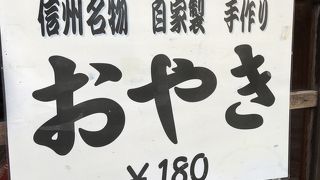 信州名物 自家製 手作り
おやき
¥180